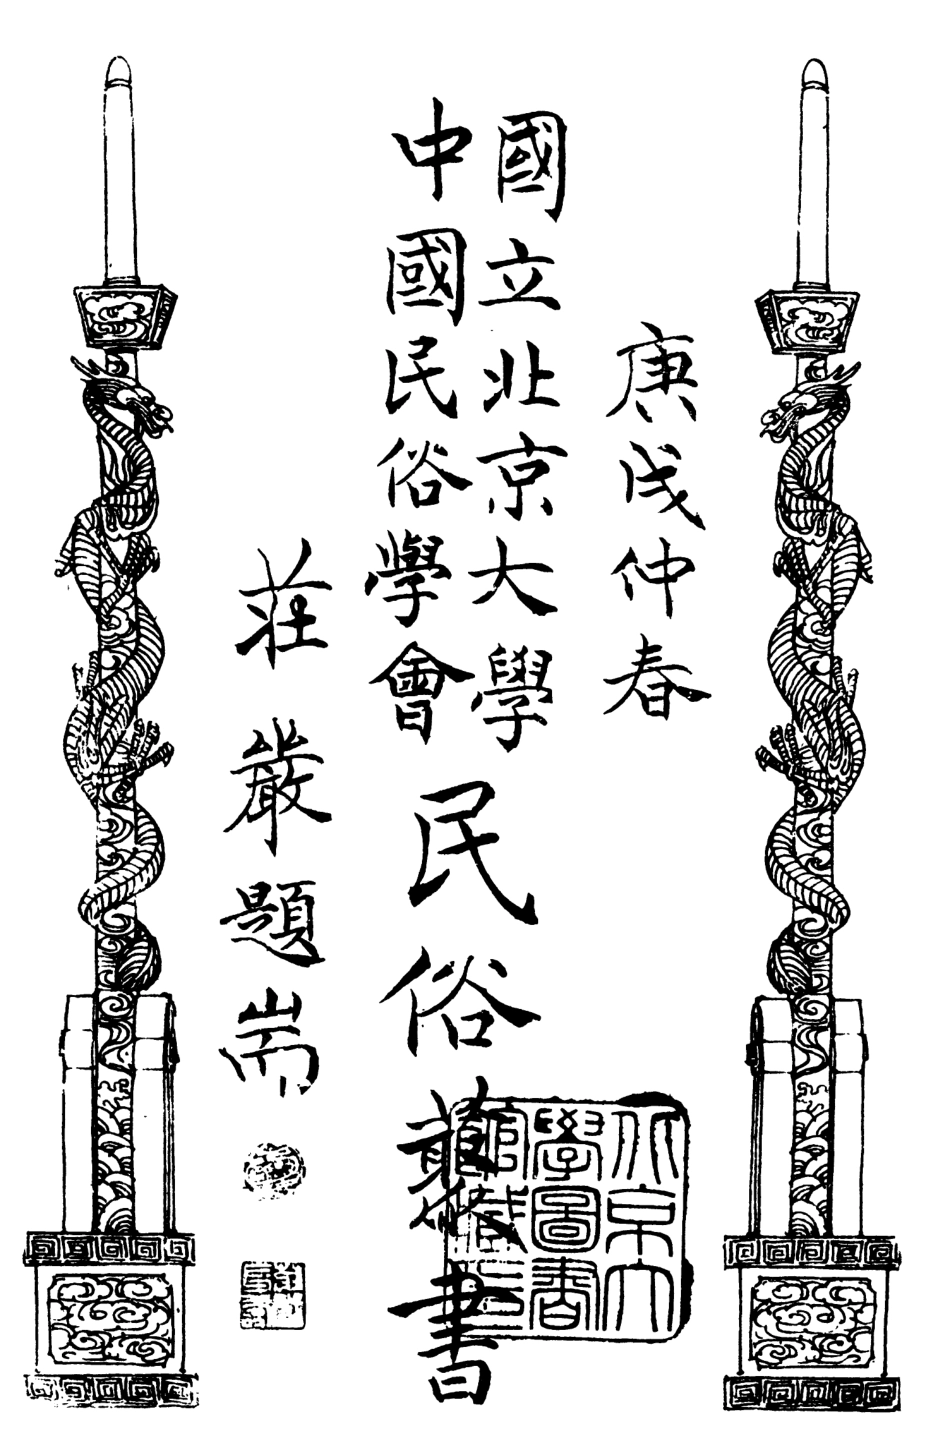 庚戌仲春
國立北京大學
中國民俗學會
民俗藂書
莊嚴題耑
北京大
學圖書
館藏